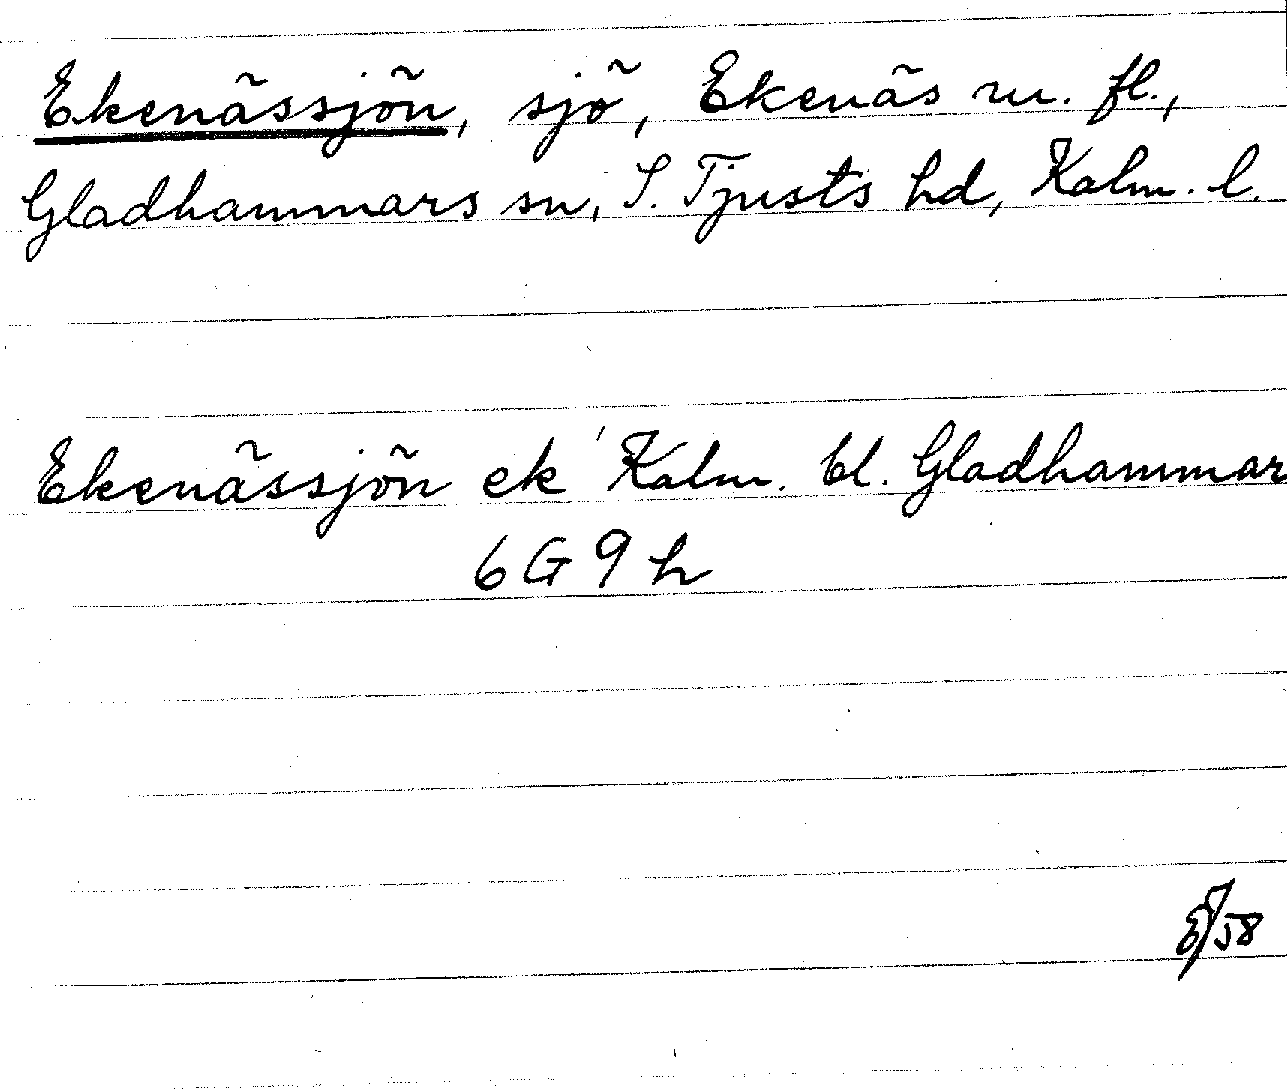 Ekenässjön, sjö, Ekenäs m. fl.,
Gladhammars sn, S. Tjusts hd, Kalm. l.
Ekenässjön ek Kalm. bl. Gladhammar
6G9h
/58